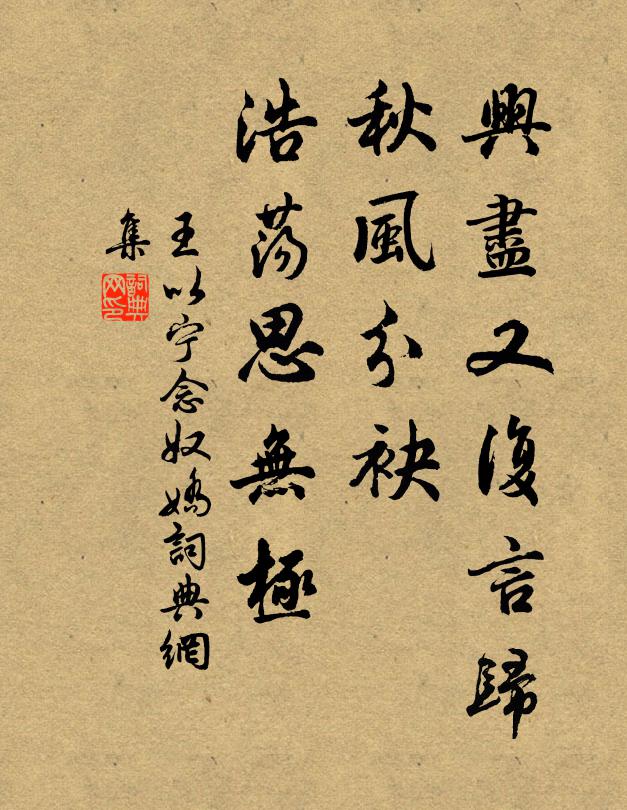 興盡又復言歸
秋風分袂
浩蕩思無極
王以宁念奴嬌詞典網
集
詞典
网印